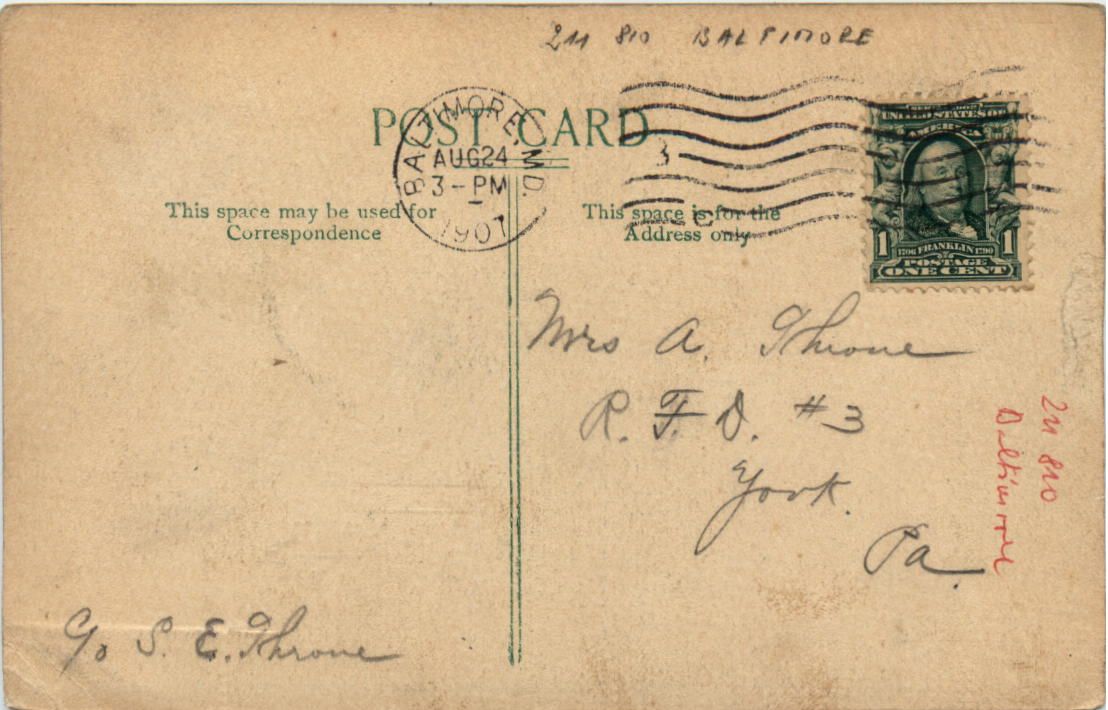 211 810 BALTIMORE
POST CARD
BALTIMORE, MD.
AUG 24
3 - PM
1907
3
C
This space may be used for
Correspondence
This space is for the
Address only
SERIES 1902
UNITED STATES OF
AMERICA
1 1706 FRANKLIN 1790 1
POSTAGE
ONE CENT
Mrs A. Throne
R. F. D. #3
York.
Pa.
c/o S. E. Throne
211 810
Baltimore